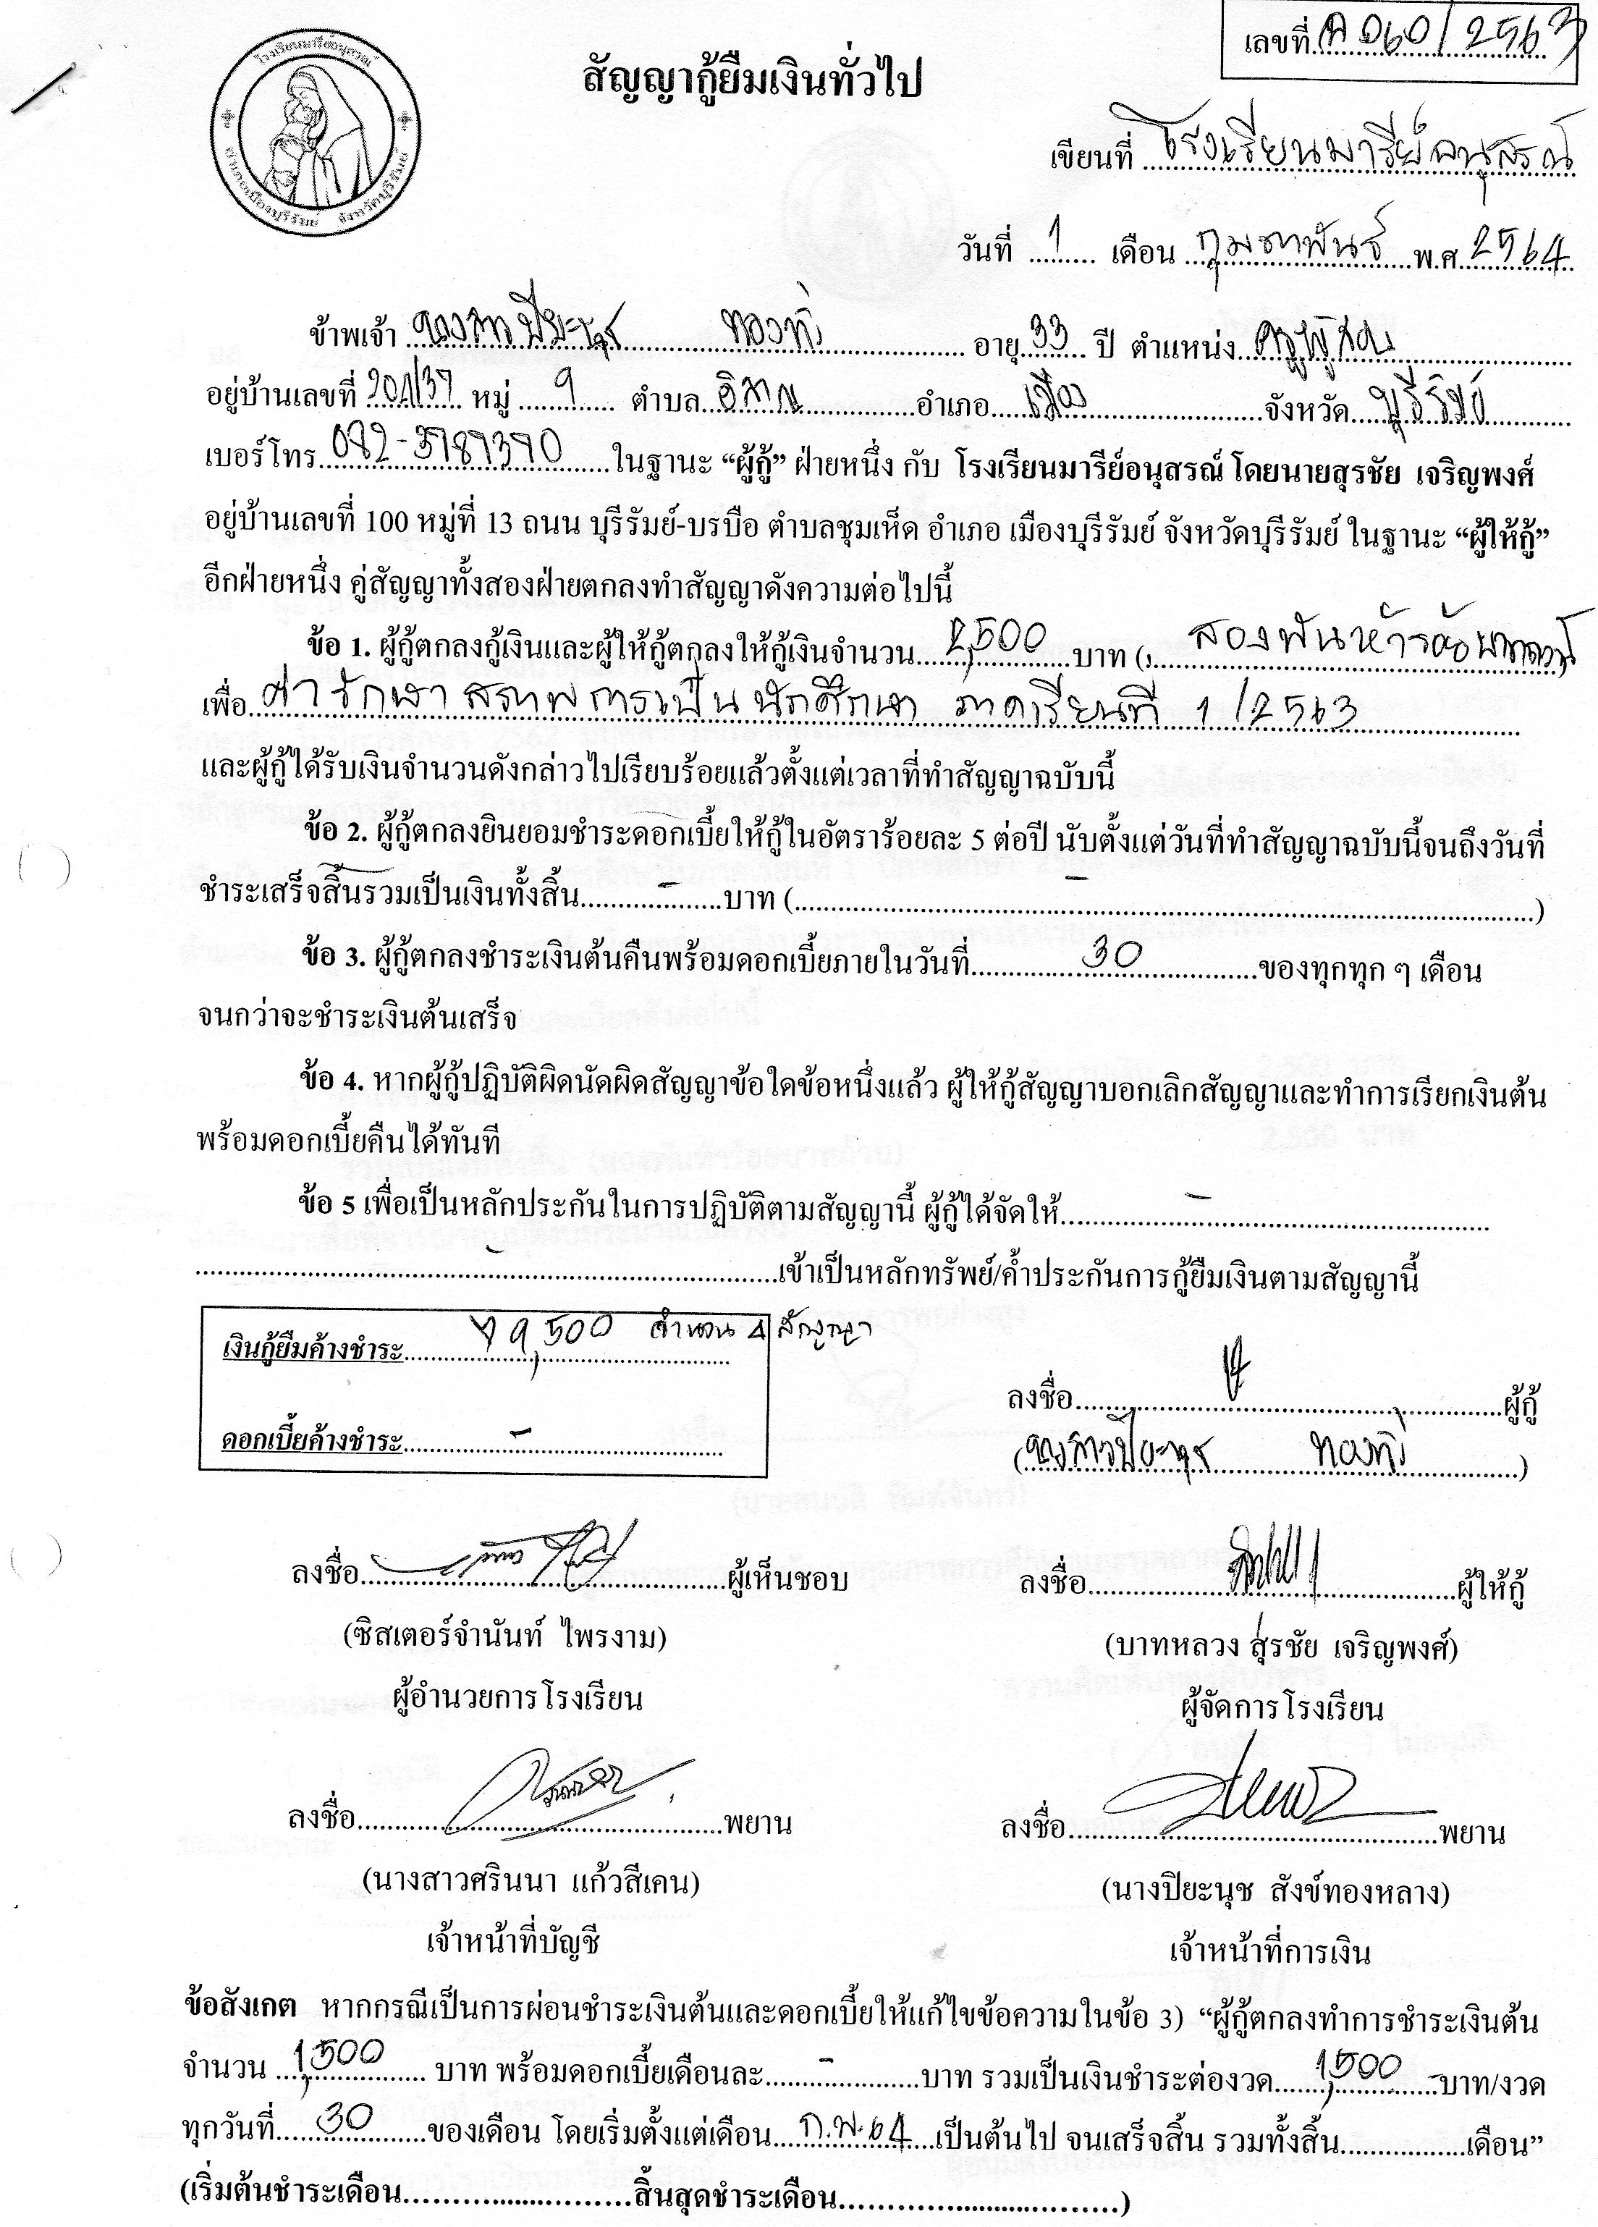 เลขที่ A 060 / 2563
โรงเรียนมารีย์อนุสรณ์
อำเภอเมืองบุรีรัมย์ จังหวัดบุรีรัมย์
สัญญากู้ยืมเงินทั่วไป
เขียนที่ โรงเรียนมารีย์อนุสรณ์
วันที่ 1 เดือน กุมภาพันธ์ พ.ศ. 2564
ข้าพเจ้า นางสาวปิยะนุช ทองทิ อายุ 33 ปี ตำแหน่ง ครูผู้สอน
อยู่บ้านเลขที่ 201/37 หมู่ 9 ตำบล อิสาณ อำเภอ เมือง จังหวัด บุรีรัมย์
เบอร์โทร ในฐานะ “ผู้กู้” ฝ่ายหนึ่ง กับ โรงเรียนมารีย์อนุสรณ์ โดยนายสุรชัย เจริญพงศ์
อยู่บ้านเลขที่ 100 หมู่ที่ 13 ถนน บุรีรัมย์-บรบือ ตำบลชุมเห็ด อำเภอ เมืองบุรีรัมย์ จังหวัดบุรีรัมย์ ในฐานะ “ผู้ให้กู้”
อีกฝ่ายหนึ่ง คู่สัญญาทั้งสองฝ่ายตกลงทำสัญญาดังความต่อไปนี้
ข้อ 1. ผู้กู้ตกลงกู้เงินและผู้ให้กู้ตกลงให้กู้เงินจำนวน 2,500 บาท (สองพันห้าร้อยบาทถวน)
เพื่อ ค่ารักษาสภาพการเป็นนักศึกษา ภาคเรียนที่ 1/2563
และผู้กู้ได้รับเงินจำนวนดังกล่าวไปเรียบร้อยแล้วตั้งแต่เวลาที่ทำสัญญาฉบับนี้
ข้อ 2. ผู้กู้ตกลงยินยอมชำระดอกเบี้ยให้กู้ในอัตราร้อยละ 5 ต่อปี นับตั้งแต่วันที่ทำสัญญาฉบับนี้จนถึงวันที่
ชำระเสร็จสิ้นรวมเป็นเงินทั้งสิ้น - บาท ( - )
ข้อ 3. ผู้กู้ตกลงชำระเงินต้นคืนพร้อมดอกเบี้ยภายในวันที่ 30 ของทุกทุก ๆ เดือน
จนกว่าจะชำระเงินต้นเสร็จ
ข้อ 4. หากผู้กู้ปฏิบัติผิดนัดผิดสัญญาข้อใดข้อหนึ่งแล้ว ผู้ให้กู้สัญญาบอกเลิกสัญญาและทำการเรียกเงินต้น
พร้อมดอกเบี้ยคืนได้ทันที
ข้อ 5 เพื่อเป็นหลักประกันในการปฏิบัติตามสัญญานี้ ผู้กู้ได้จัดให้ -
- เข้าเป็นหลักทรัพย์/ค้ำประกันการกู้ยืมเงินตามสัญญานี้
เงินกู้ยืมค้างชำระ 19,500 จำนวน 4 สัญญา
ดอกเบี้ยค้างชำระ -
ลงชื่อ ผู้กู้
(นางสาวปิยะนุช ทองทิ)
ลงชื่อ ผู้เห็นชอบ ลงชื่อ ผู้ให้กู้
(ซิสเตอร์จำนันท์ ไพรงาม) (บาทหลวง สุรชัย เจริญพงศ์)
ผู้อำนวยการโรงเรียน ผู้จัดการโรงเรียน
ลงชื่อ พยาน ลงชื่อ พยาน
(นางสาวศรินนา แก้วสีเคน) (นางปิยะนุช สังข์ทองหลาง)
เจ้าหน้าที่บัญชี เจ้าหน้าที่การเงิน
ข้อสังเกต หากกรณีเป็นการผ่อนชำระเงินต้นและดอกเบี้ยให้แก้ไขข้อความในข้อ 3) “ผู้กู้ตกลงทำการชำระเงินต้น
จำนวน 1,500 บาท พร้อมดอกเบี้ยเดือนละ - บาท รวมเป็นเงินชำระต่องวด 1,500 บาท/งวด
ทุกวันที่ 30 ของเดือน โดยเริ่มตั้งแต่เดือน ก.พ. 64 เป็นต้นไป จนเสร็จสิ้น รวมทั้งสิ้น เดือน”
(เริ่มต้นชำระเดือน สิ้นสุดชำระเดือน )